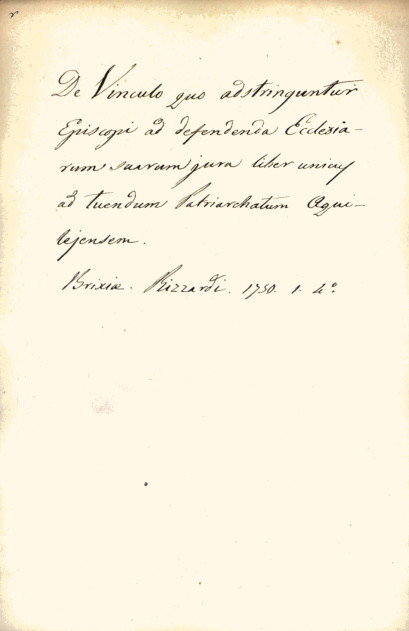 De Vinculo quo adstringuntur
Episcopi ad defendenda Ecclesia-
rum suarum jura liber unicus
ad tuendum Patriarchatum Aqui-
lejensem.
Brixiae. Rizzardi. 1750. 1. 4°.